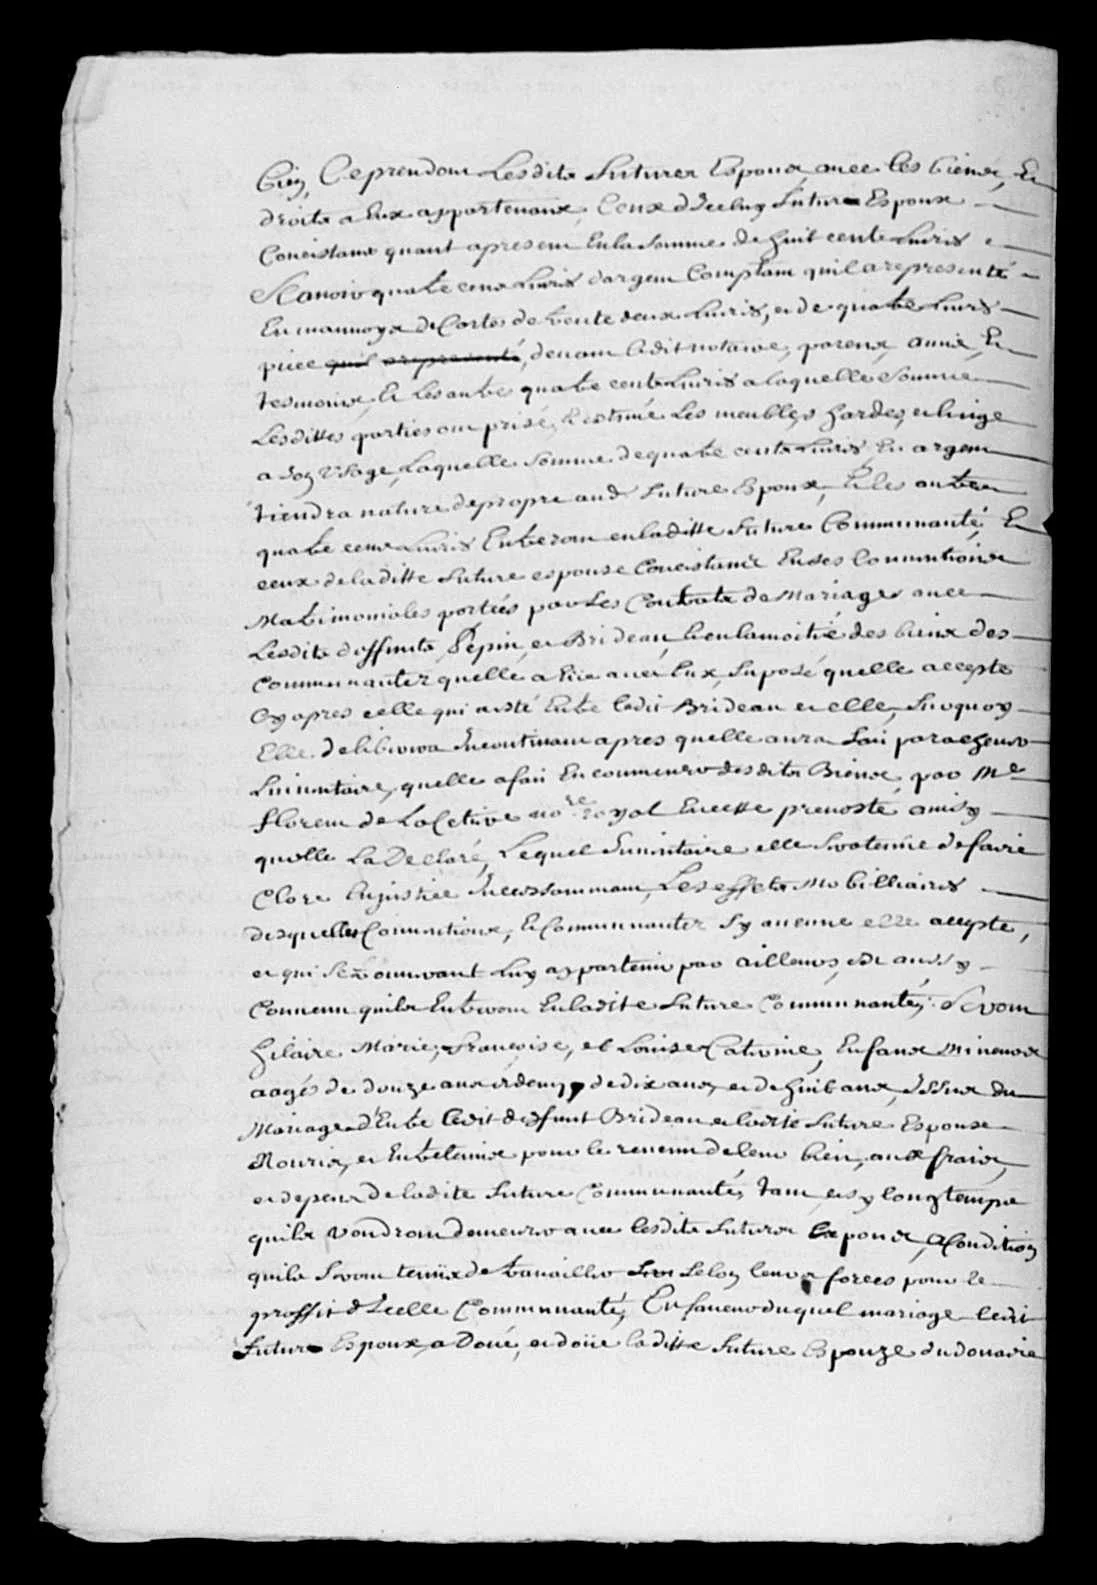 bien, Ce prendront Lesdits futures Espoux avec les biens, Et
droits a Eux appartenans, Ceux d'Iceluy futur Espoux
Concistant quant apresent En la Somme de huit cents Livres
Scavoir quatre cens Livres d'argent Comptant quil a representé
En monnoye de Cartes de trente deux Livres, et de quatre Livres
piece quil a representé, devant ledit notaire, parens, amis, Et
tesmoins, Et les autres quatre cents Livres a laquelle Somme
Lesdittes parties ont prisé, & estimé Les meubles, hardes, et linge
a son Usage, Laquelle Somme de quatre cents Livres En argent
tiendra nature de propre aud. futur Espoux, Et les autres
quatre cens Livres Entreront en laditte future Communauté, Et
ceux de laditte future espouse Concistants En ses Conventions
Matrimoniales portées par les Contrats de Mariages avec
Lesdits deffunts, Pepin, et Brideau, Et en la moitié des biens des
Communautez quelle a Eüe avec Eux, Suposé quelle accepte
Cy apres celle qui a esté Entre ledit Brideau et elle, Surquoy
Elle deliberera Incontinant apres quelle aura fait parachever
Linventaire, quelle a fait Encommencer desdits Biens, par Me
florent de LaCetiere nore. royal En cette prevosté, ainsy
quelle La Declaré, Lequel Inventaire elle Sera tenüe de faire
Clore En justice Incessamment, Les effets Mobilliaires
desquelles Conventions, Et Communautez Sy aucune elle accepte,
et qui Se trouveront Luy appartenir par ailleurs, est aussy
Convenu quils Entreront En ladite future Communauté; Seront
hilaire Marie, françoise, et Louise Catherine, Enfans Mineurs
aagés de douze ans et demy, de dix ans, et de huit ans, Issus du
Mariage d'Entre ledit deffunt Brideau et ladite future Espouse
Nouris, et Entretenus pour le revenu de leur bien, aux frais,
et depens de ladite future Communauté, tant et sy longtemps
quils voudront demeurer avec lesdits futurs Espoux, a Condition
quils Seront tenüs de travailler Selon leurs forces pour le
proffit d'Icelle Communauté, En faveur duquel mariage ledit
futur Espoux, a Doué, et doüe laditte future Espouze du douaire